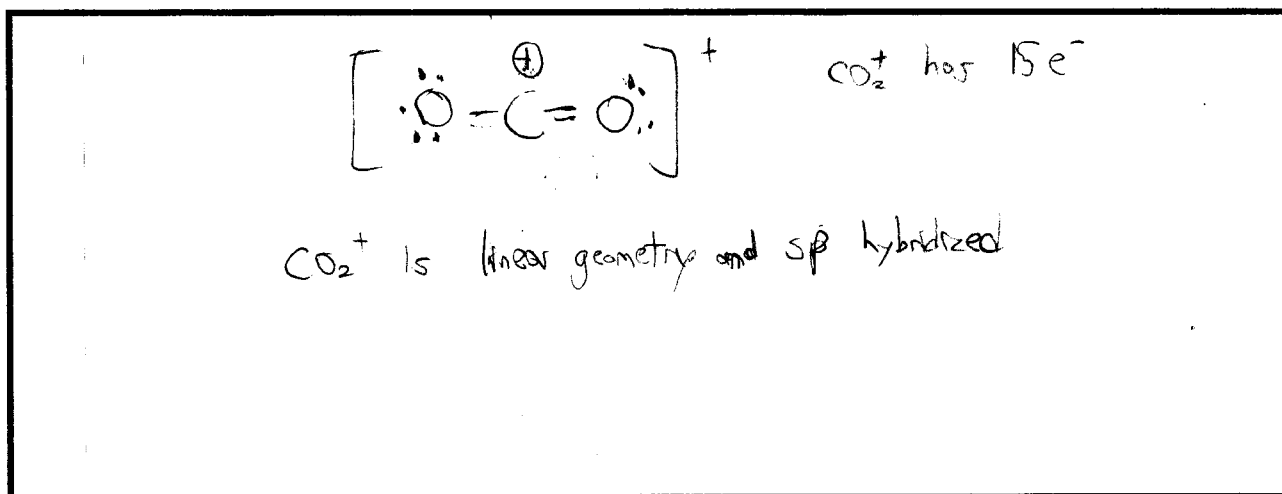 [ :Ö - C⊕ = Ö: ]⁺ CO₂⁺ has 15 e⁻
CO₂⁺ is linear geometry and sp hybridized